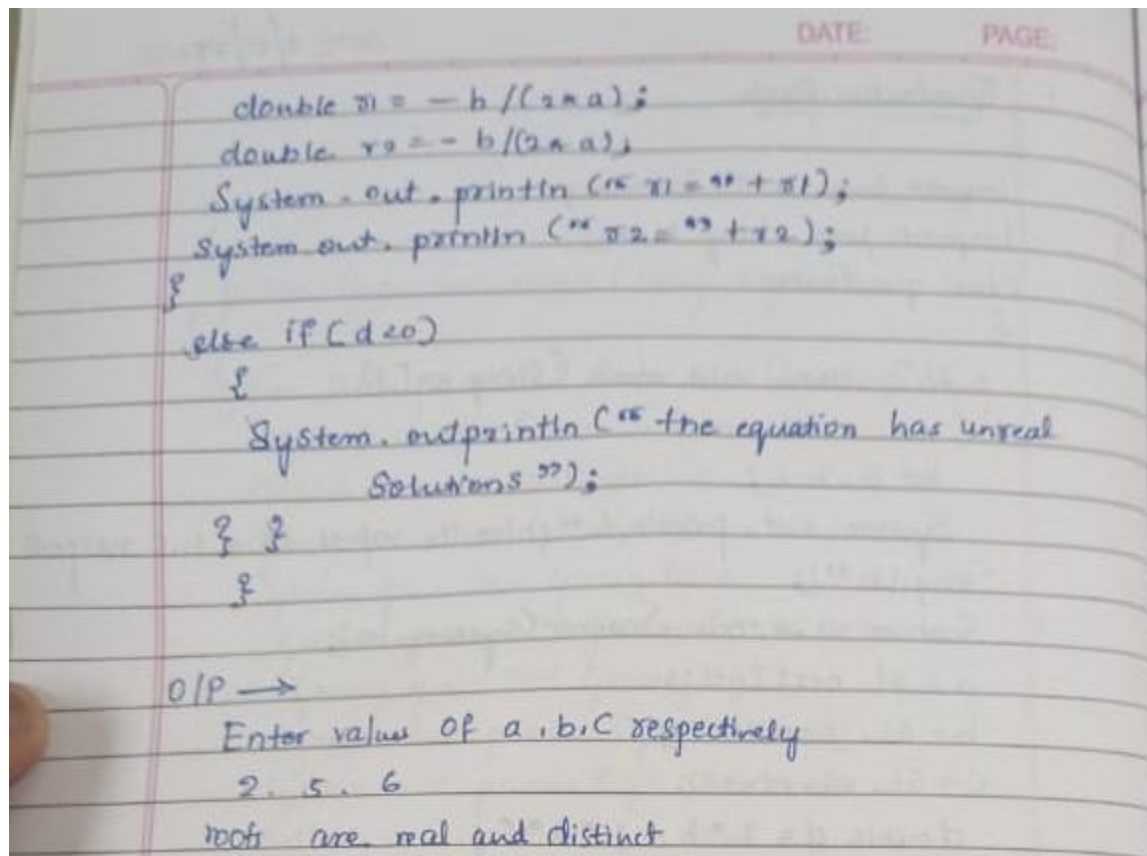 DATE: PAGE:
double r1 = - b /(2 * a);
double r2 = - b /(2 * a);
System.out.println (“ r1 = ” + r1);
System out. println (“ r2 = ” + r2);
}
else if (d<0)
{
System.outprintln (“ the equation has unreal
Solutions ”);
} }
}
O/P →
Enter values of a, b, C respectively
2. 5. 6
roots are real and distinct